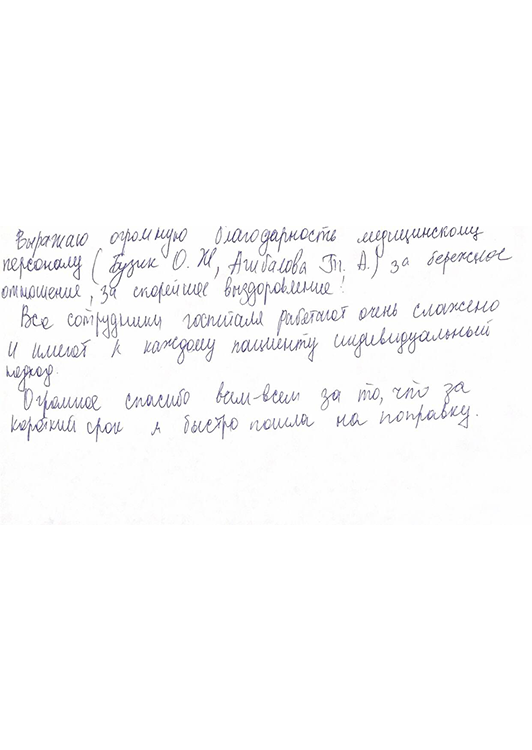 Выражаю огромную благодарность медицинскому
персоналу (Бузик О. Ж, Агибалова Т. А.) за бережное
отношение, за скорейшее выздоровление!
Все сотрудники госпиталя работают очень слажено
и имеют к каждому пациенту индивидуальный
подход.
Огромное спасибо всем-всем за то, что за
короткий срок я быстро пошла на поправку.